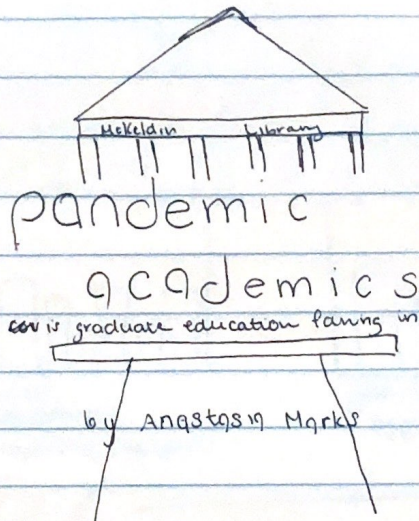 McKeldin Library
pandemic
academics
is graduate education faring in
by Anastasia Marks